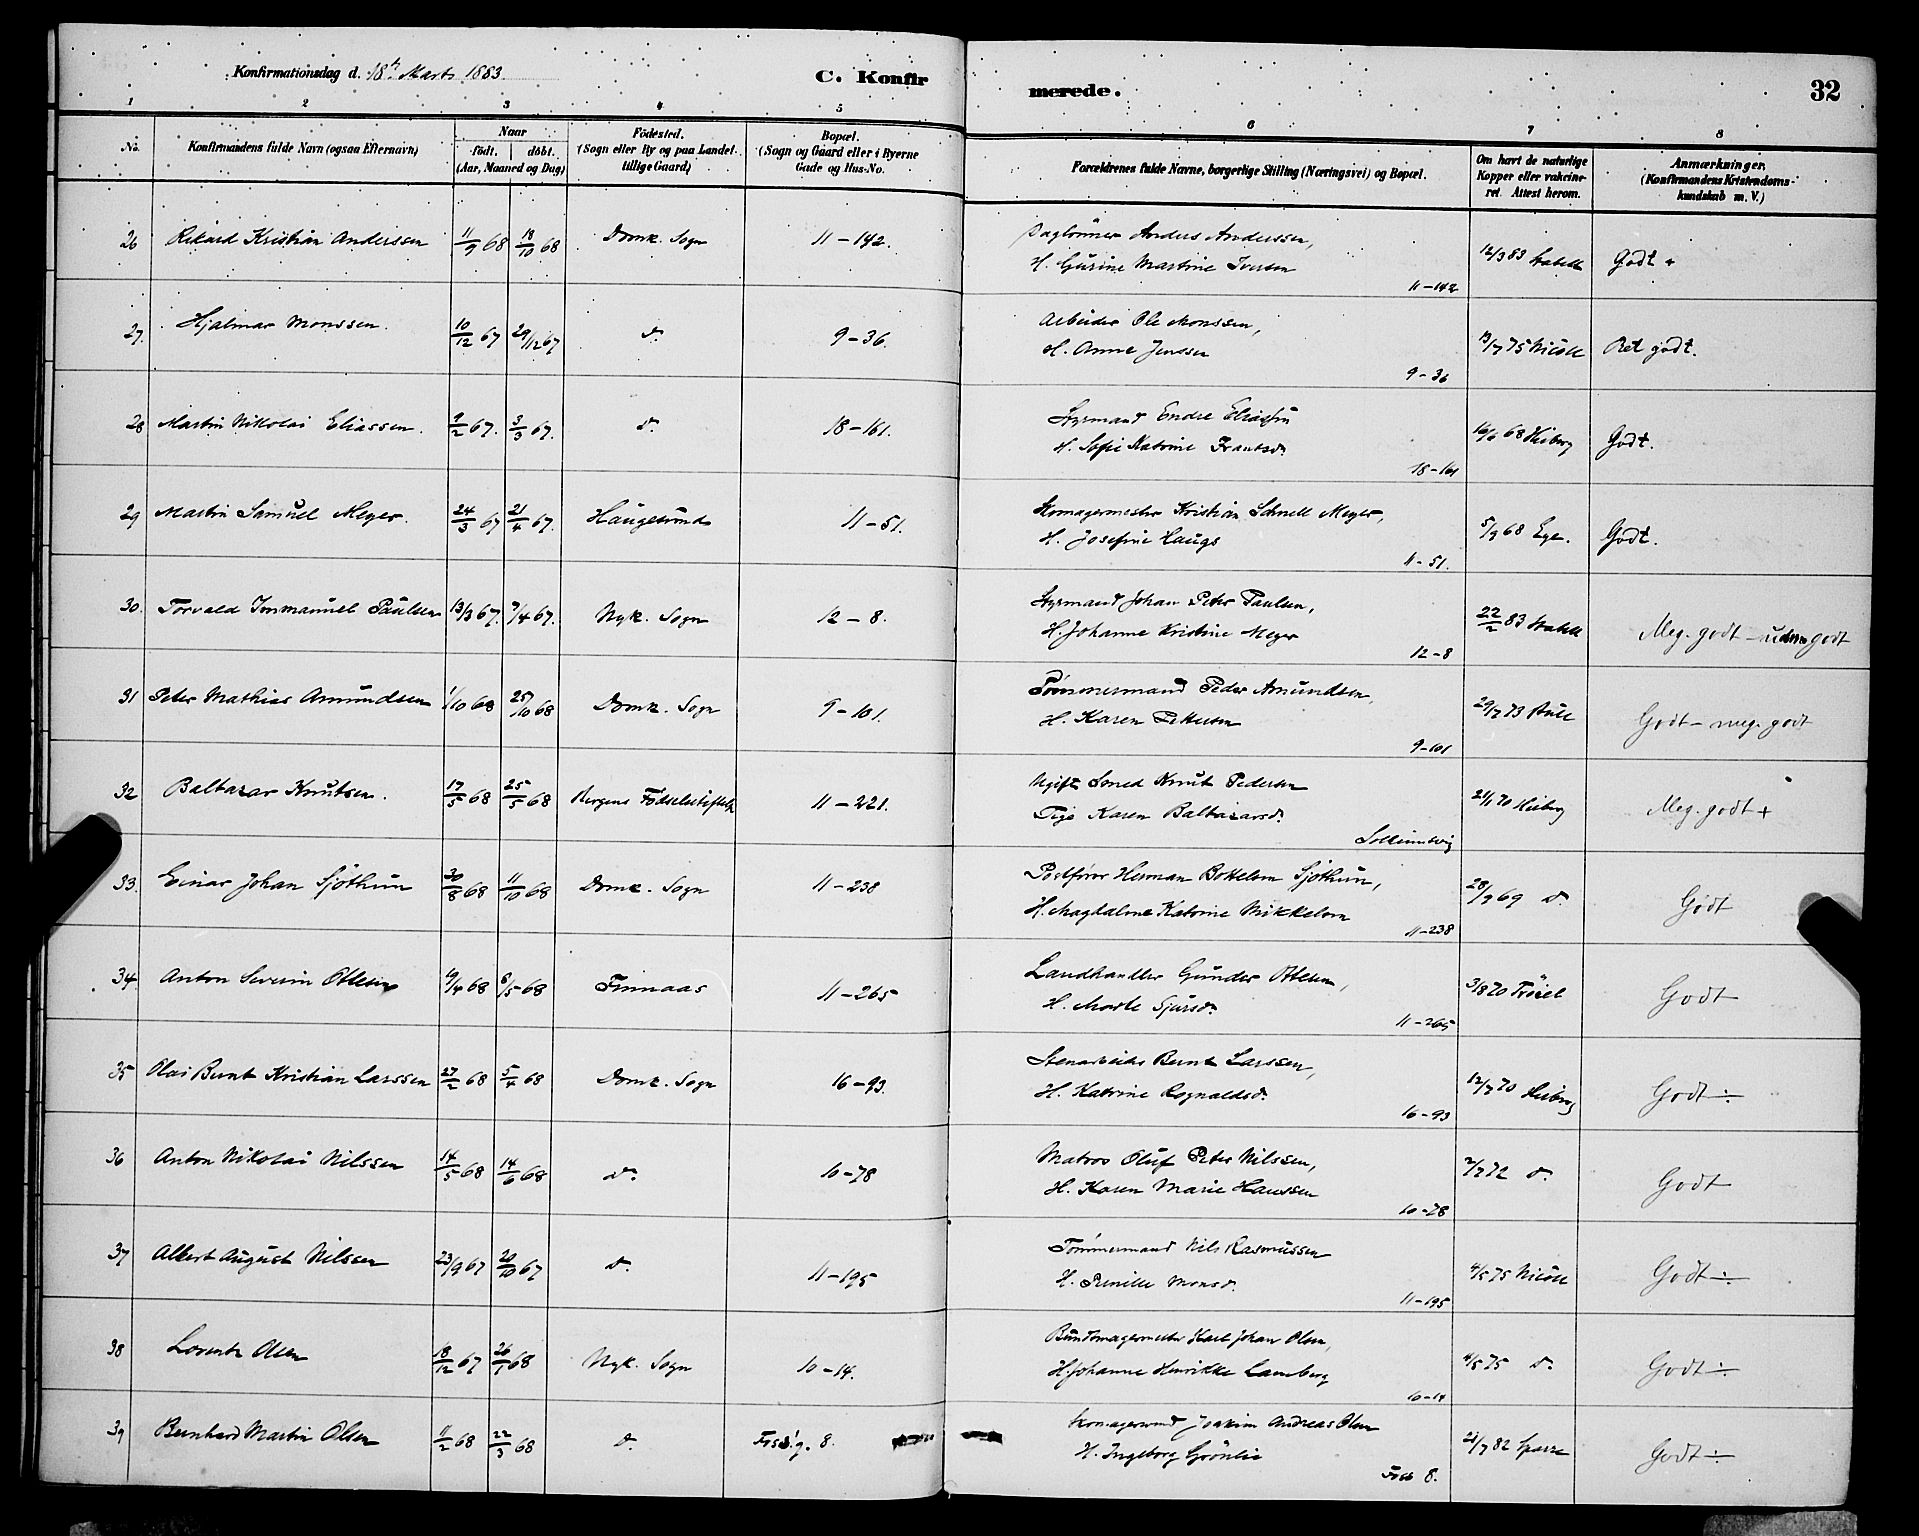 Konfirmationsdag d. 18de Marts 1883.
C. Konfirmerede.
32
1 2 3 4 5 6 7 8
No.
Konfirmandens fulde Navn (ogsaa Efternavn)
Naar
födt. | döbt.
(Aar, Maaned og Dag)
Födested.
(Sogn eller By og paa Landet tillige Gaard)
Bopæl.
(Sogn og Gaard eller i Byerne Gade og Hus-No.
Forældrenes fulde Navne, borgerlige Stilling (Næringsvei) og Bopæl.
Om havt de naturlige Kopper eller vakcineret. Attest herom.
Anmærkninger.
(Konfirmandens Kristendomskundskab m. V.)
26 Rikard Kristian Anderssen 11/9 68 18/10 68 Domk. Sogn 11-142.
Daglönner Anders Anderssen,
H. Gurine Martine Iversen
11-142
12/3 83 Godt +
27. Hjalmar Monssen. 10/12 67 29/12 67 do 9-36.
Arbeider Ole Monssen,
H. Anne Jenssen
9-36
75 Nicoll Ret godt.
28 Martin Nikolai Eliassen. 9/2 67. 3/3 67. do 18-161.
Styrmand Endre Eliassen
H. Sofie Katrine Frantsdr.
18-161
16/6 68 Heiberg Godt.
29 Martin Samuel Meyer. 24/3 67 21/4 67. Haugesund 11-51.
Skomagermester Kristian Schnell Meyer,
H. Josefine Haugs
11-51.
5/9 68 Ege. Godt.
30. Torvald Immanuel Paulsen 13/3 67. 7/4 67. Nyk. Sogn 12-8.
Styrmand Johan Peter Paulsen,
H. Johanne Kristine Meyer
12-8
22/2 83 Meg. godt - udm. godt
31 Peter Mathias Amundsen 1/10 68 25/10 68 Domk. Sogn 9-101.
Tömmermand Peder Amundsen,
H. Karen Pettersen
9-101
29/7 73 Godt - meg. godt
32 Baltazar Knutsen. 17/5 68 25/5 68 Bergens Födselsstiftelse 11-221.
Ugift Smed Knut Pedersen
Pige Karen Baltazarsdr.
Solheimsvig
21/1 70 Heiberg Meg. godt +
33. Einar Johan Sjöthun 30/8 68 11/10 68 Domk. Sogn 11-238
Postförer Herman Bottelsen Sjöthun,
H. Magdalene Katrine Mikkelsen
11-238
28/9 69 do Godt
34. Anton Severin Ottesen 9/4 68 8/5 68 Finnaas 11-265
Landhandler Gunder Ottesen,
H. Marte Sjursdr.
11-265
3/8 70 Godt
35 Olai Bernt Kristian Larssen 27/2 68 5/4 68 Domk. Sogn 16-93.
Stenarbeider Bernt Larssen,
H. Katrine Ragnaldsdr.
16-93
12/7 70 Heiberg Godt ÷
36 Anton Nikolai Nilssen 14/5 68 14/6 68 do 10-78
Matros Oluf Peter Nilssen,
H. Karen Marie Hanssen
10-78
2/7 72 do Godt
37 Albert August Nilssen 23/9 67 20/10 67 do 11-195
Tömmermand Nils Rasmussen
H. Pernille Monsdr.
11-195
4/5 75 Nicoll Godt ÷
38 Lorents Olsen 18/12 67 26/1 68 Nyk. Sogn 10-14.
Buntmagermester Karl Johan Olsen,
H. Johanne Henrikke Lamberg
10-14
4/5 75 do Godt ÷
39 Bernhard Martin Olsen 11/2 68 22/3 68 do Fossg. 8.
Skomagersvend Joakim Andreas Olsen
H. Ingeborg Grönlie
Foss 8.
21/7 82 Sparre Godt ÷